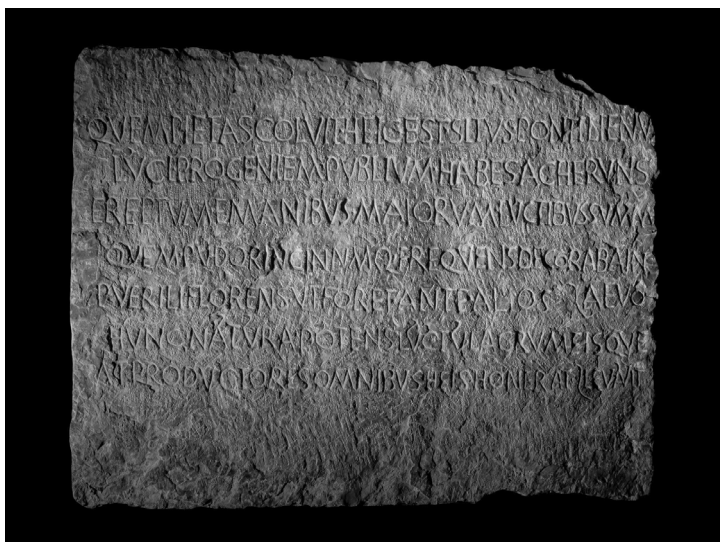 QVEMPIETASCOLVITHEICESTSITVSPONTIDIENVM
LVCIPROGENIEMPVBLIVMHABESACHERVNS
EREPTVMEMANIBVS·MAIORVMLVCTIBVSSVMM
QVEMPVDORINGINIVMQ·FREQVENSDECORABAIN
PVERILIFLORENSVTFORETANTEALIOS AEVO
HVNCNATVRAPOTENSLVCTVLACRVMEISQVE
PRODVCTORESOMNIBVSHEISHONERAT